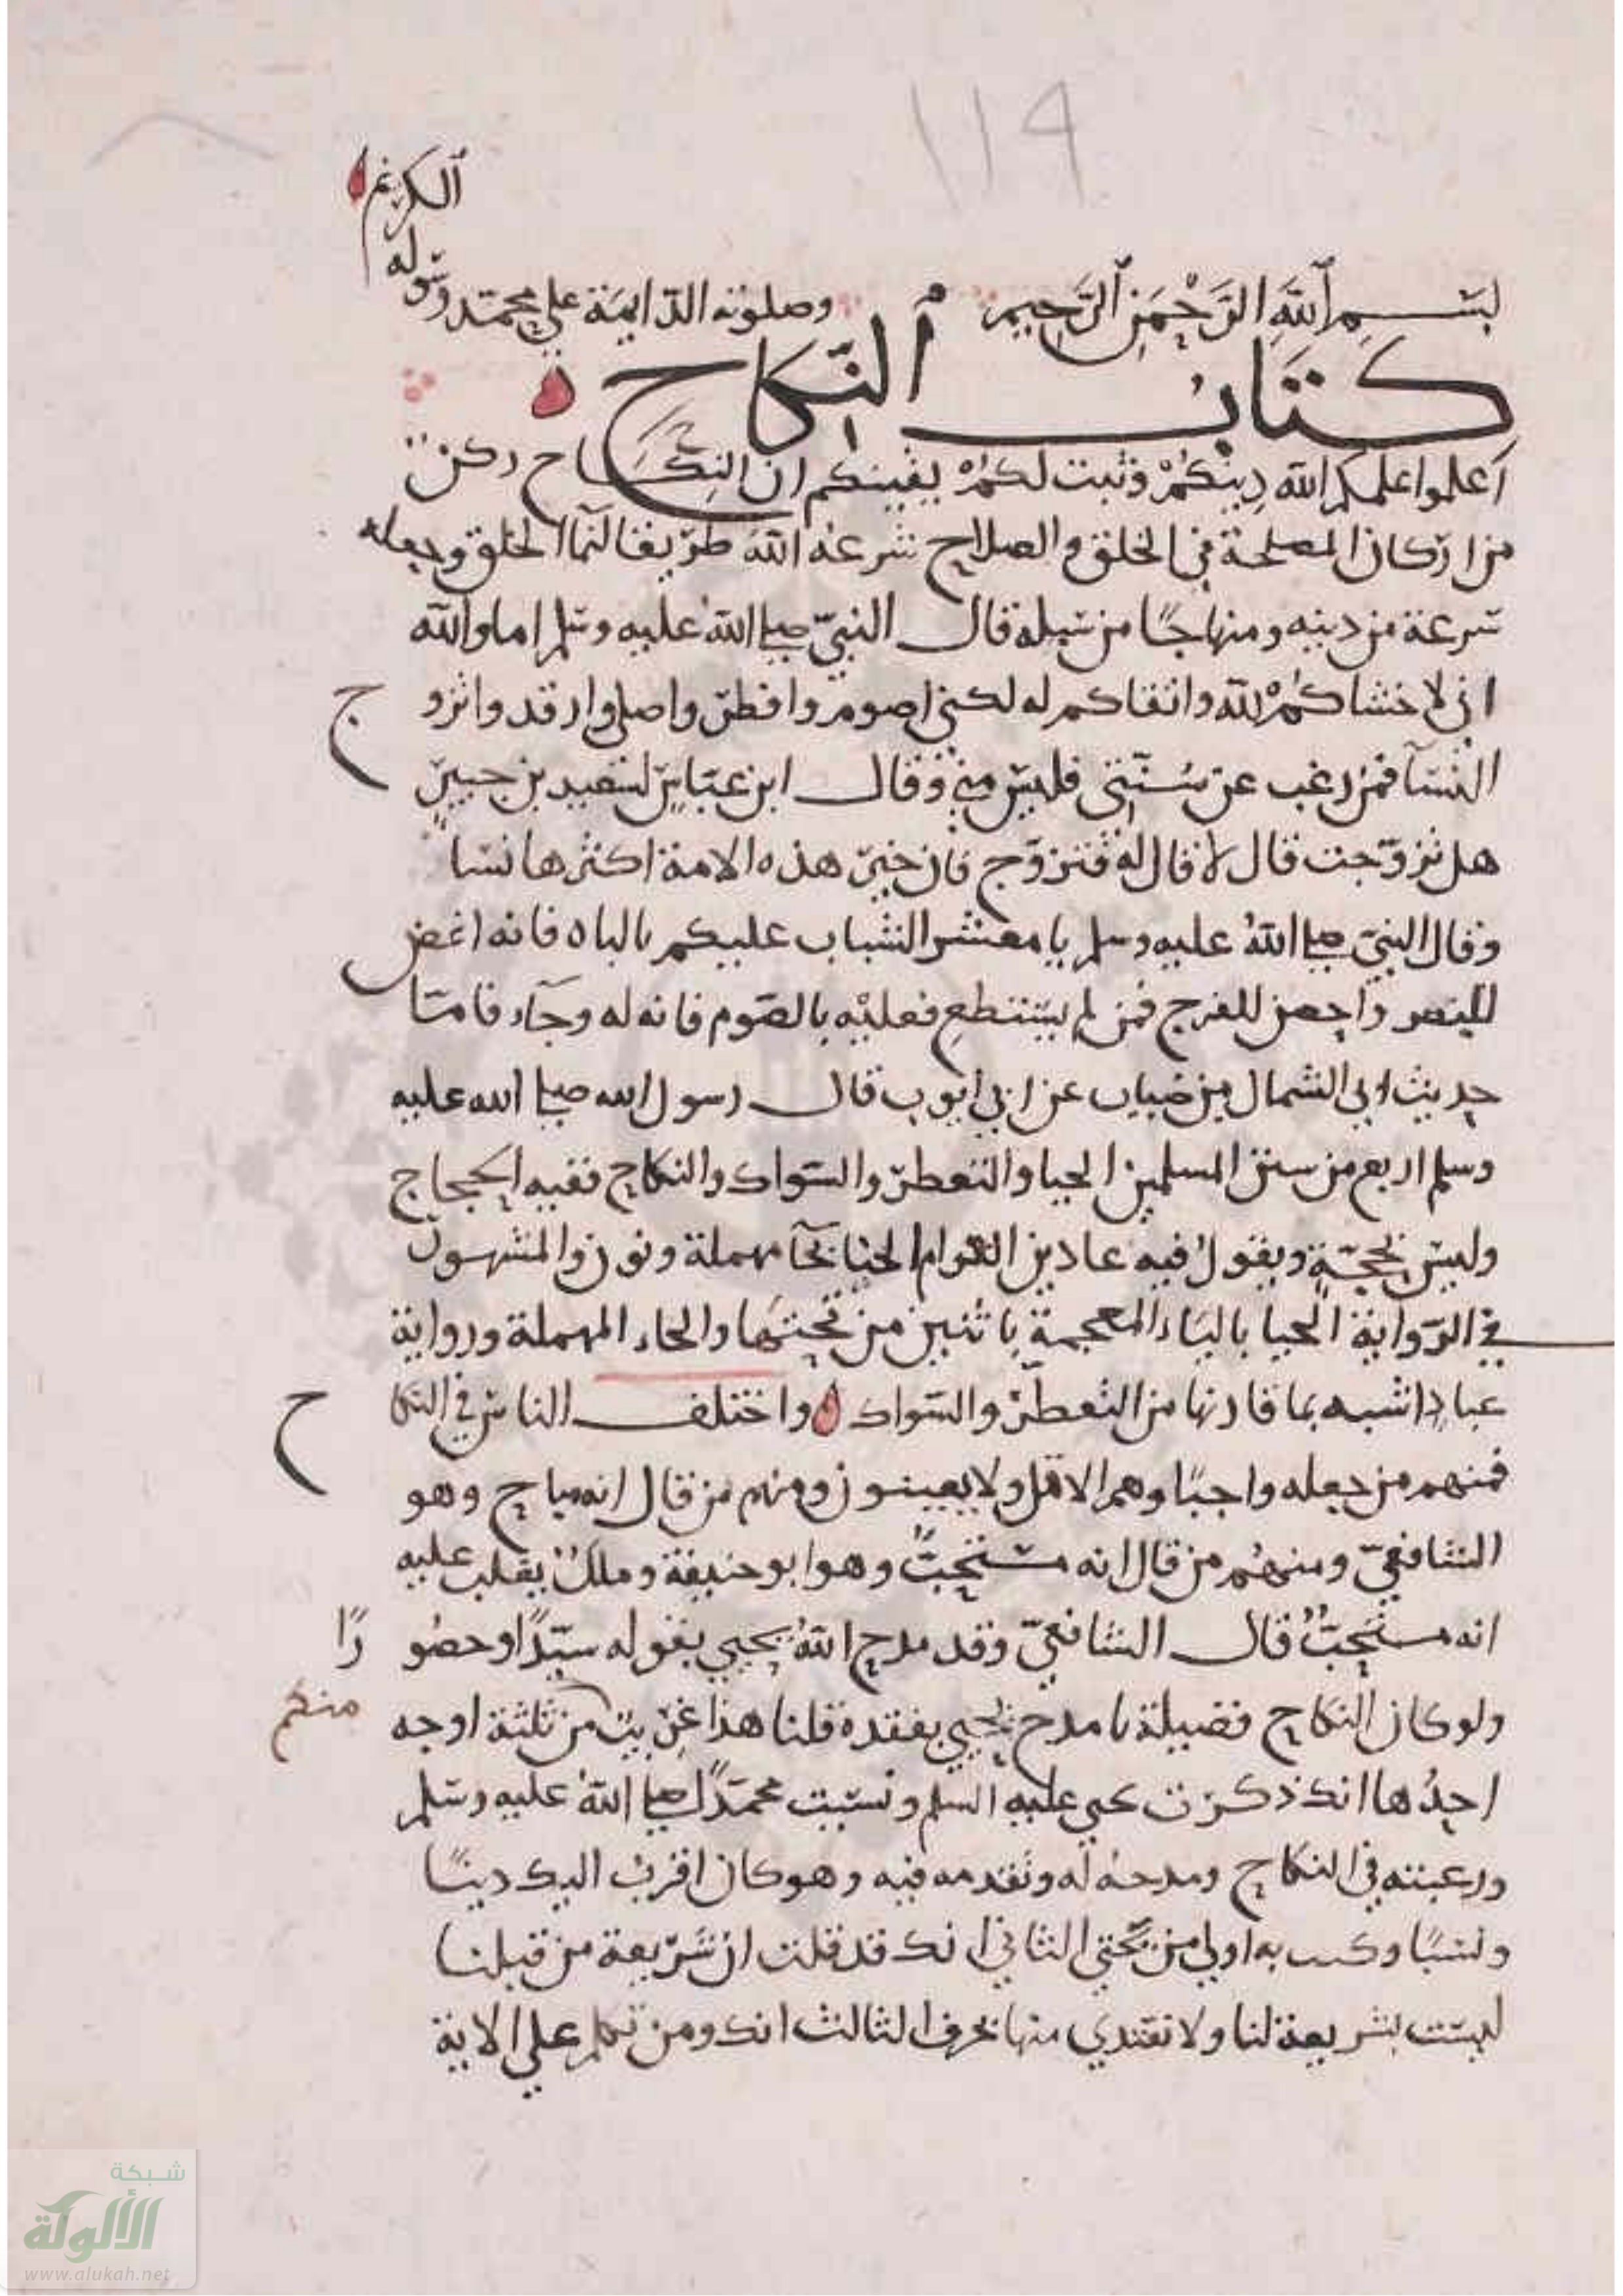 ١١٩
بسم الله الرحمن الرحيم وصلوته الدايمة على محمد رسوله الكريم
كتاب النكاح
اعلموا علمكم الله دينكم وثبت لكم يقينكم ان النكاح ركن
من اركان المصلحة في الخلق والصلاح شرعه الله طريقا لنما الخلق وجعله
شرعة من دينه ومنهاجًا من سبله قال النبي صلى الله عليه وسلم اما والله
اني لاخشاكم لله واتقاكم له لكني اصوم وافطر واصلي وارقد واتزوج
النسآ فمن رغب عن سنتي فليس مني وقال ابن عباس لسعيد بن جبير
هل تزوجت قال لا قال له فتزوج فان خير هذه الامة اكثرها نسا
وقال النبي صلى الله عليه وسلم يا معشر الشباب عليكم بالباه فانه اغض
للبصر واحصن للفرج فمن لم يستطع فعليه بالصوم فانه له وجآء فاما
حديث ابي الشمال بن ضباب عن ابي ايوب قال رسول الله صلى الله عليه
وسلم اربع من سنن المسلمين الحيا والتعطر والسواك والنكاح ففيه الحجاج
وليس بحجة ويقول فيه عباد بن العوام الحنا بحآ مهملة ونون والمشهور
في الرواية الحيا بالياء المعجمة باثنين من تحتها والحاء المهملة ورواية
عباد اشبه بما قارنها من التعطر والسواك واختلف الناس في النكاح
فمنهم من جعله واجبًا وهم الاقل ولا يعينون ومنهم من قال انه مباح وهو
الشافعي ومنهم من قال انه مستحب وهو ابو حنيفة وملك يغلب عليه
انه مستحب قال الشافعي وقد مدح الله يحيي بقوله سيدًا وحصورًا
ولو كان النكاح فضيلة ما مدح يحيي بفقده قلنا هذا غريب منكم من ثلثة اوجه
احدها انك ذكرت يحيي عليه السلم ونسيت محمدًا صلى الله عليه وسلم
ورغبته في النكاح ومدحه له وتقدمه فيه وهو كان اقرب اليك دينًا
ونسبًا وكنت به اولى من يحيى الثاني انك قد قلت ان شريعة من قبلنا
ليست بشريعة لنا ولا نقتدي منها بحرف الثالث انك ومن تكلم على الاية
شبكة
الألوكة
www.alukah.net